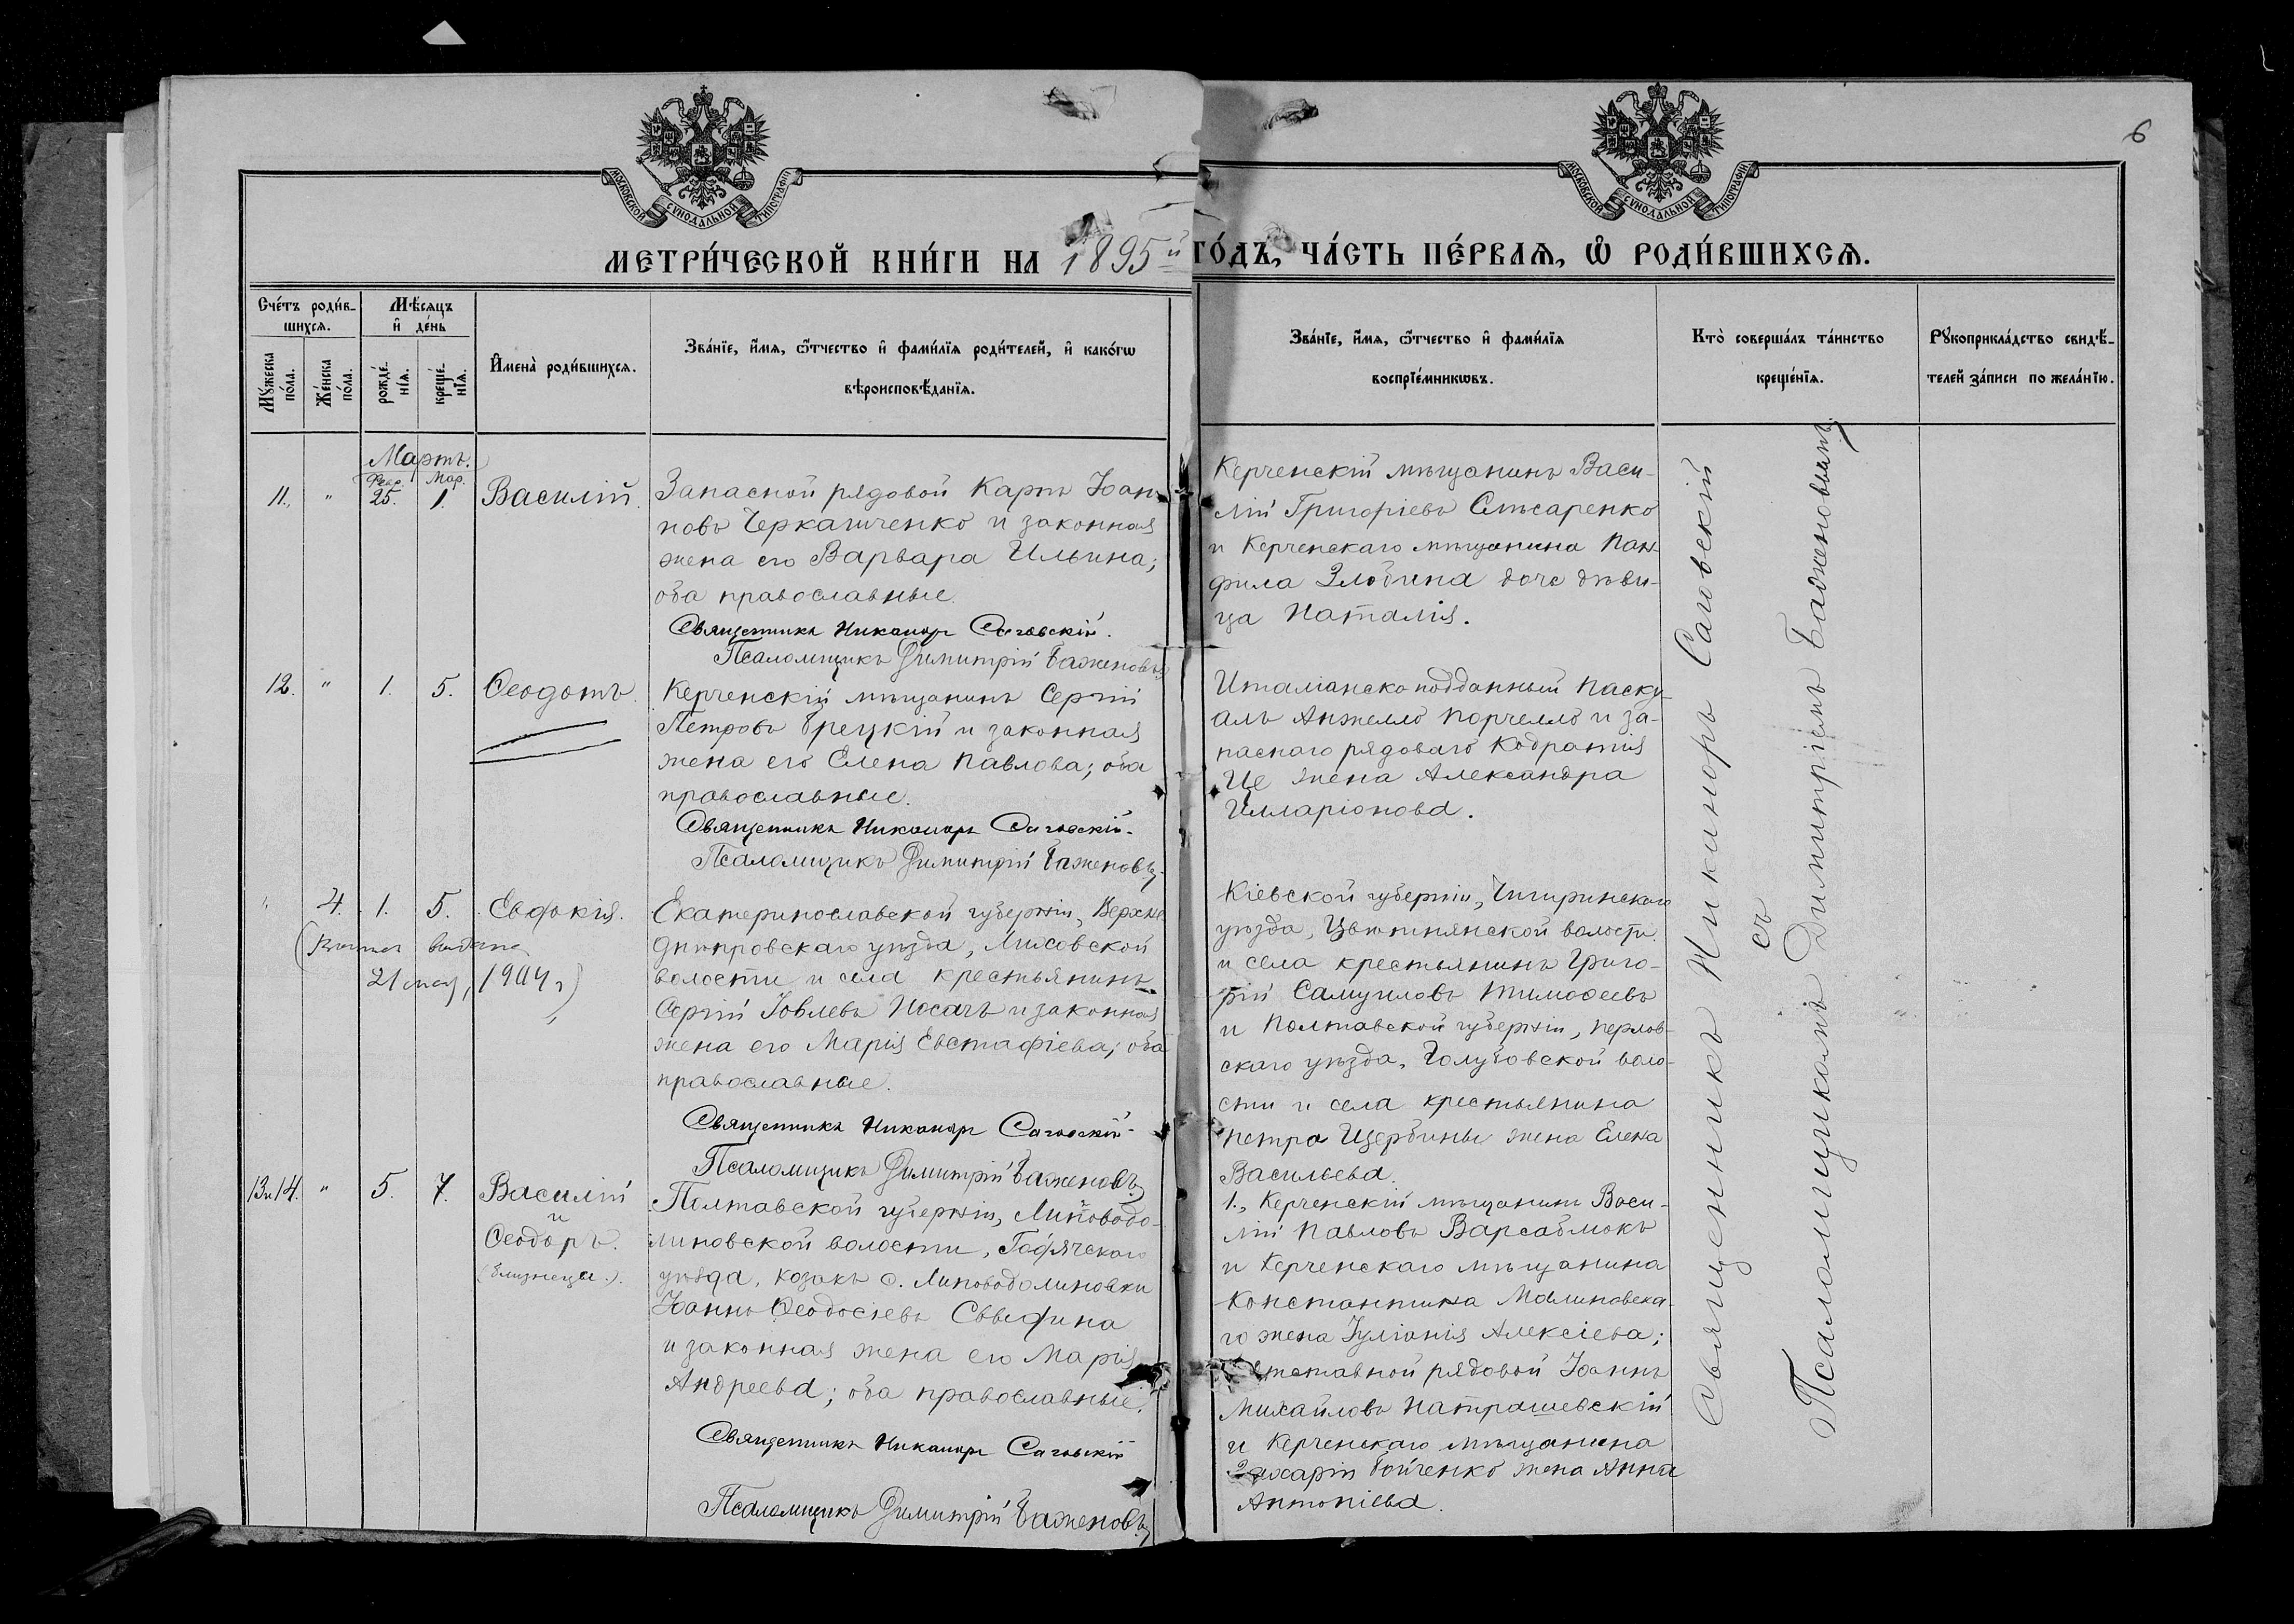 6
МОСКОВСКОЙ СУНОДАЛЬНОЙ ТИПОГРАФІИ
МОСКОВСКОЙ СУНОДАЛЬНОЙ ТИПОГРАФІИ
МЕТРИ́ЧЕСКОЙ КНИ́ГИ НА 1895й ГО́ДЪ, ЧА́СТЬ ПЕ́РВАѦ, Ѡ҆ РОДИ́ВШИХСѦ.
Сче́тъ роди́в-
шихсѧ.
Мꙋ́жеска по́ла.
Же́нска по́ла.
Мѣ́сѧцъ
и҆ де́нь
рожде́-
нїѧ.
креще́-
нїѧ.
И҆мена̀ роди́вшихсѧ.
Зва́нїе, и҆́мѧ, ѻ҆́тчество и҆ фами́лїѧ роди́телей, и҆ како́гѡ
вѣроисповѣ́данїѧ.
Зва́нїе, и҆́мѧ, ѻ҆́тчество и҆ фами́лїѧ
воспрїе́мникѡвъ.
Кто̀ соверша́лъ та́инство
креще́нїѧ.
Рꙋкоприкла́дство свидѣ́-
телей за́писи по жела́нїю.
Мартъ.
Февр. Мар.
11. " 25. 1. Василій.
Запасной рядовой Карпъ Іоан-
новъ Черкашченко и законная
жена его Варвара Ильина;
оба православные.
Священникъ Никаноръ Саговскій.
Псаломщикъ Димитрій Баженовъ
Керченскій мѣщанинъ Васи-
лій Григоріевъ Слѣсаренко
и Керченскаго мѣщанина Пан-
фила Злобина дочь дѣви-
ца Наталія.
12. " 1. 5. Ѳеодотъ.
Керченскій мѣщанинъ Сергій
Петровъ Грецкій и законная
жена его Елена Павлова; оба
православные.
Священникъ Никаноръ Саговскій.
Псаломщикъ Димитрій Баженовъ
Италіанско подданный Паску-
аль Анжелло Порчелло и за-
паснаго рядоваго Кодратія
Це жена Александра
Илларіонова.
" 4. 1. 5. Евдокія.
выдана
21 мая, 1904 г)
Екатеринославской губерніи, Верхне
днѣпровскаго уѣзда, Лиховской
волости и села крестьянинъ
Сергій Іовлевъ Носачъ и законная
жена его Марія Евстафіева; оба
православные.
Священникъ Никаноръ Саговскій
Псаломщикъ Димитрій Баженовъ
Кіевской губерніи, Чигиринскаго
уѣзда, волости
и села крестьянинъ Григо-
рій Самуиловъ Тимоѳеевъ
и Полтавской губерніи,
скаго уѣзда, Голубовской воло-
сти и села крестьянина
Петра Щербины жена Елена
Васильева.
13 и 14. " 5. 7. Василій
и
Ѳеодоръ.
(близнецы.).
Полтавской губерніи, Липоводо-
линовской волости, Гадячскаго
уѣзда, козакъ с. Липоводолиновки
Іоаннъ Ѳеодосіевъ
и законная жена его Марія
Андреева; оба православные.
Священникъ Никаноръ Саговскій
Псаломщикъ Димитрій Баженовъ
1., Керченскій мѣщанинъ Васи-
лій Павловъ
и Керченскаго мѣщанина
Константина Малиновска-
го жена Іуліанія Алексіева;
рядовой Іоаннъ
Михайловъ Патрашевскій
и Керченскаго мѣщанина
Захарія Бойченко жена Анна
Антоніева.
Священникъ Никаноръ Саговскій
съ
Псаломщикомъ Димитріемъ Баженовымъ